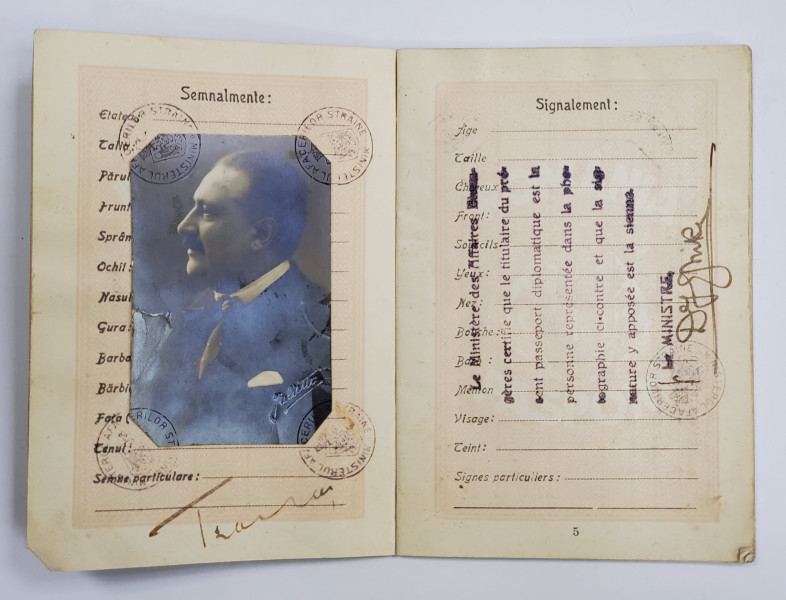 Semnalmente:
Etatea
Talia
Părul
Frunt
Sprân
Ochii:
Nasul
Gura:
Barba
Bărbi
Fața
Tenul:
Semne particulare:
MINISTERUL AFACERILOR STRAINE
MINISTERUL AFACERILOR STRAINE
MINISTERUL AFACERILOR STRAINE
MINISTERUL AFACERILOR STRAINE
Signalement:
Age
Taille
Cheveux
Front:
Sourcils:
Yeux:
Nez:
Bouche:
Barbe
Menton
Visage:
Teint:
Signes particuliers:
Le Ministère des Affaires
gères certifie que le titulaire du pré-
sent passeport diplomatique est la
personne représentée dans la pho-
tographie ci-contre et que la sig-
nature y apposée est la sienne.
Le MINISTRE,
MINISTERUL AFACERILOR STRAINE
5